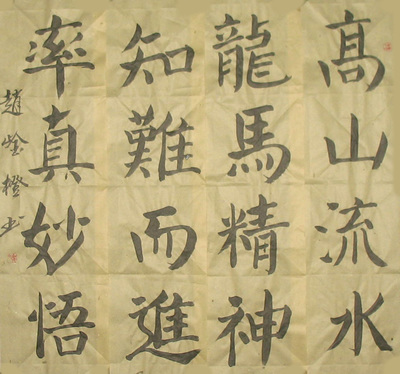 高山流水
龍馬精神
知難而進
率真妙悟
趙
書